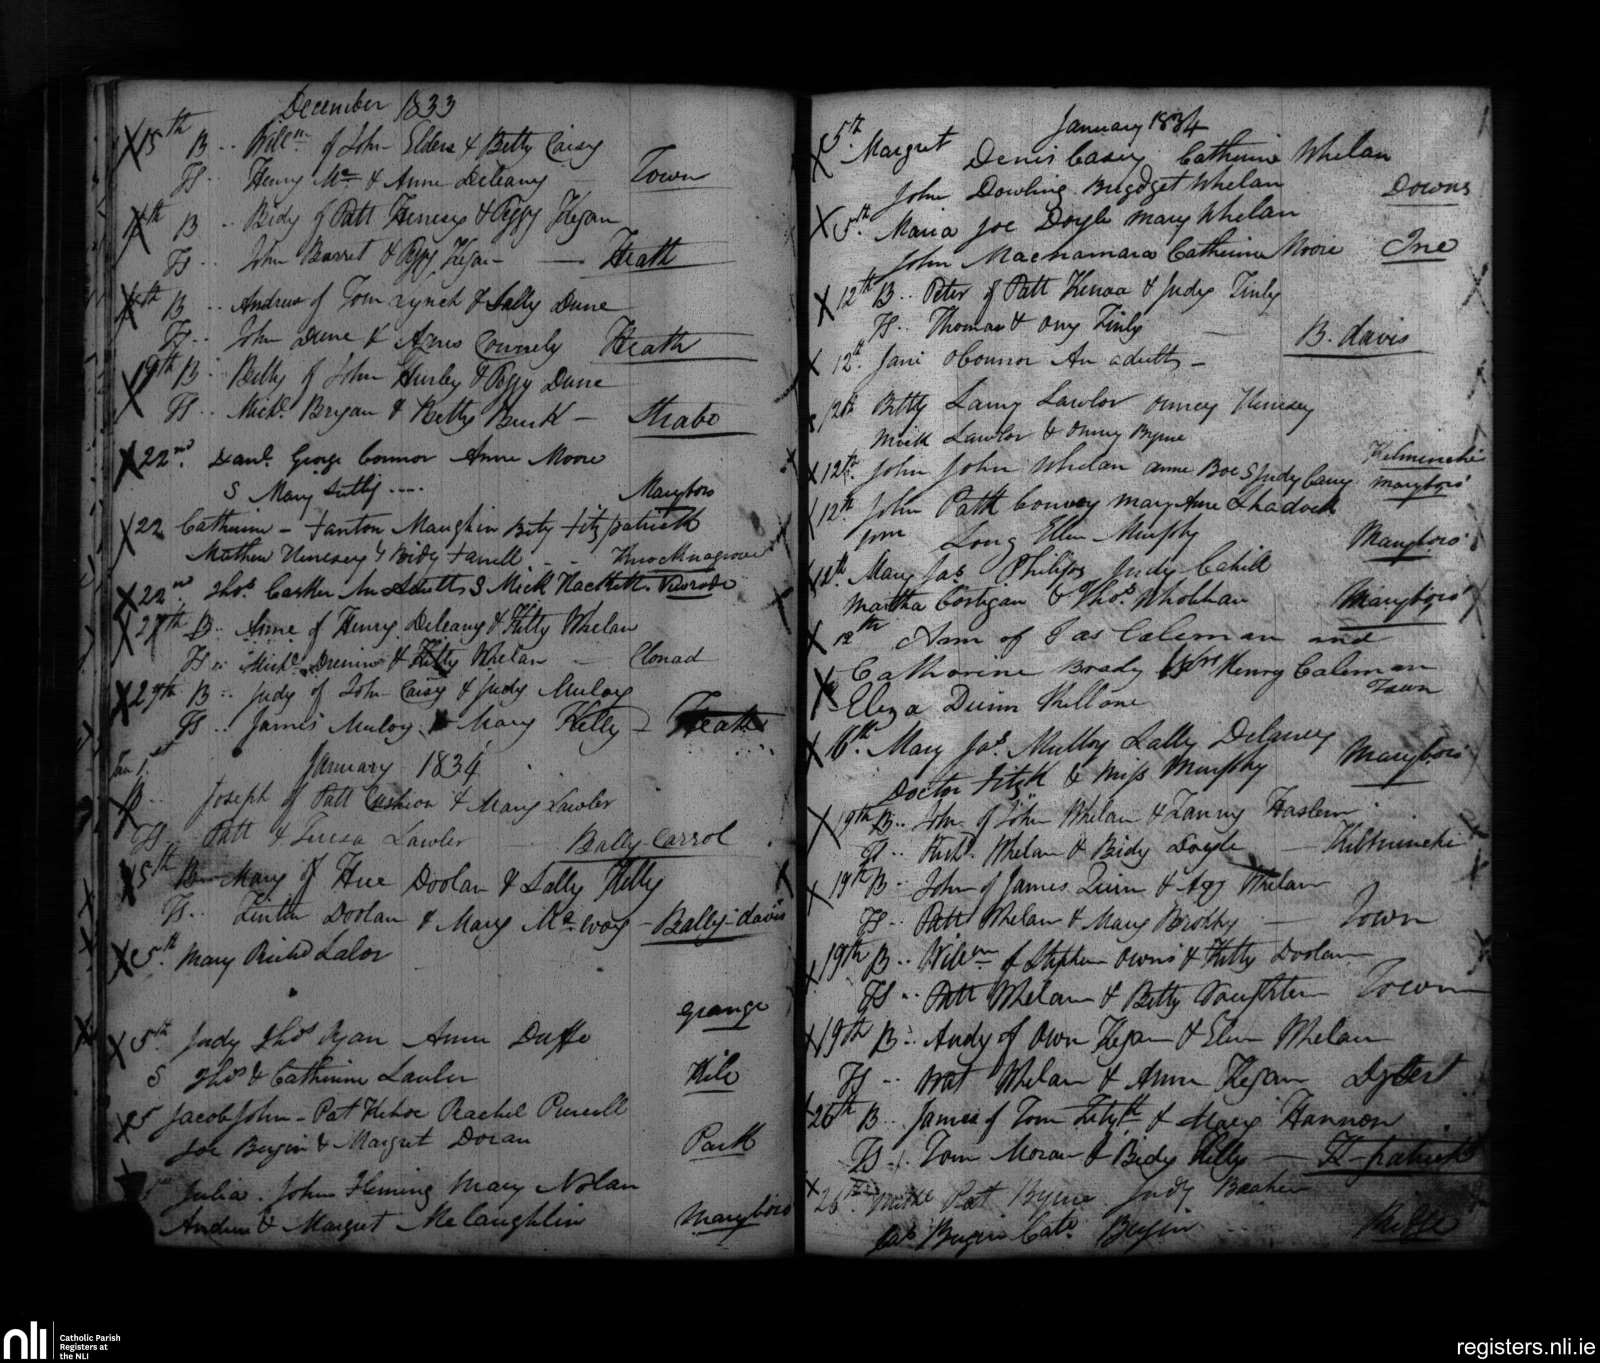 December 1833
15th B.. Willm of John Elders & Betty Caisy
Henry Mc & Anne Deleany Town
B.. Bidy of Patt Henesy & Peggy Kegan
John Barret & Peggy Kegan Heath
B.. Andrew of Tom Lynch & Sally Dune
John Dune & Agnes Connely Heath
19th B. Betty of John Hurley & Peggy Dune
Mickl Bryan & Betty Burk - Strabo
22nd. Danl. George Connor Anne Moore
S Mary Maryboro
22 Catherine - Fanton Maughin Bity Fitzpatrick
Mathew Henesey & Bidy Farrell
22nd Thos. Casker An Adult S Mick Hackett.
27th B.. Anne of Henry Deleany & Kitty Whelan
Mickl. & Kitty Whelan - Clonad
29th B.. Judy of John Caisy & Judy Muloy
James Muloy & Mary Kelly - Heath
Jan 1st
January 1834
B.. Joseph of Patt Cushion & Mary Lawler
Patt & Teresa Lawler Bally-Carrol
5th Mary of Hue Doolan & Sally Kelly
Fintan Doolan & Mary Mc evoy - Bally-davis
5th. Mary Richd Lalor
Grange
5th. Judy Thos Ryan Anne Duffe
S Thos & Catherine Lawler Kile
5 Jacob John - Pat Kehoe Rachel Purcell
Joe Bergin & Margret Doran Park
Julia. John Fleming Mary Nolan
Andrew & Margret McLaughlin Maryboro
January 1834
5th. Margret Denis Casey Catherine Whelan
John Dowling Bridget Whelan Downs
5th. Maria Joe Doyle Mary Whelan
John Macnamara Catherine Moore Ine
12th B.. Peter of Patt Kenaa & Judy Finly
Thomas & Any Finly B. davis
12th. Jane OConnor An adult -
12th Betty Lawlor Henesey
Mick Lawlor & Byrne Kilminchi
12th. John John Whelan Anne Boe S Judy Casey Maryboro
12th. John Patk Convey Mary Anne Shadock
Long Ellen Murphy Maryboro
12th. Mary Jas Judy Cahill
Martha Costigan & Thos. Whelehan Maryboro
12th Ann of Jas Caleman and
Catharine Brady Henry Caleman
Eliza Dunn Killone Town
16th. Mary Jas. Mulloy Sally Delaney
Doctor Fitzk & Miss Murphy Maryboro
19th B.. John of John Whelan & Fanny Haslem
Richd. Whelan & Bidy Doyle - Kilminchi
19th B.. John of James Quin & Whelan
Patt Whelan & Mary Brophy - Town
19th B.. Willm of Stephen Owens & Kitty Doolan
Patt Whelan & Betty Town
19th B.. Andy of Own Kegan & Elen Whelan
Whelan & Anne Kegan Dysert
26th B.. James of Tom Fitzpk & Mary Hannon
Tom Moran & Bidy Kelly - K-patrick
26th Pat Byrne Judy
Jas Bergin Cath. Bergin Ridge
nli
Catholic Parish
Registers at
the NLI
registers.nli.ie